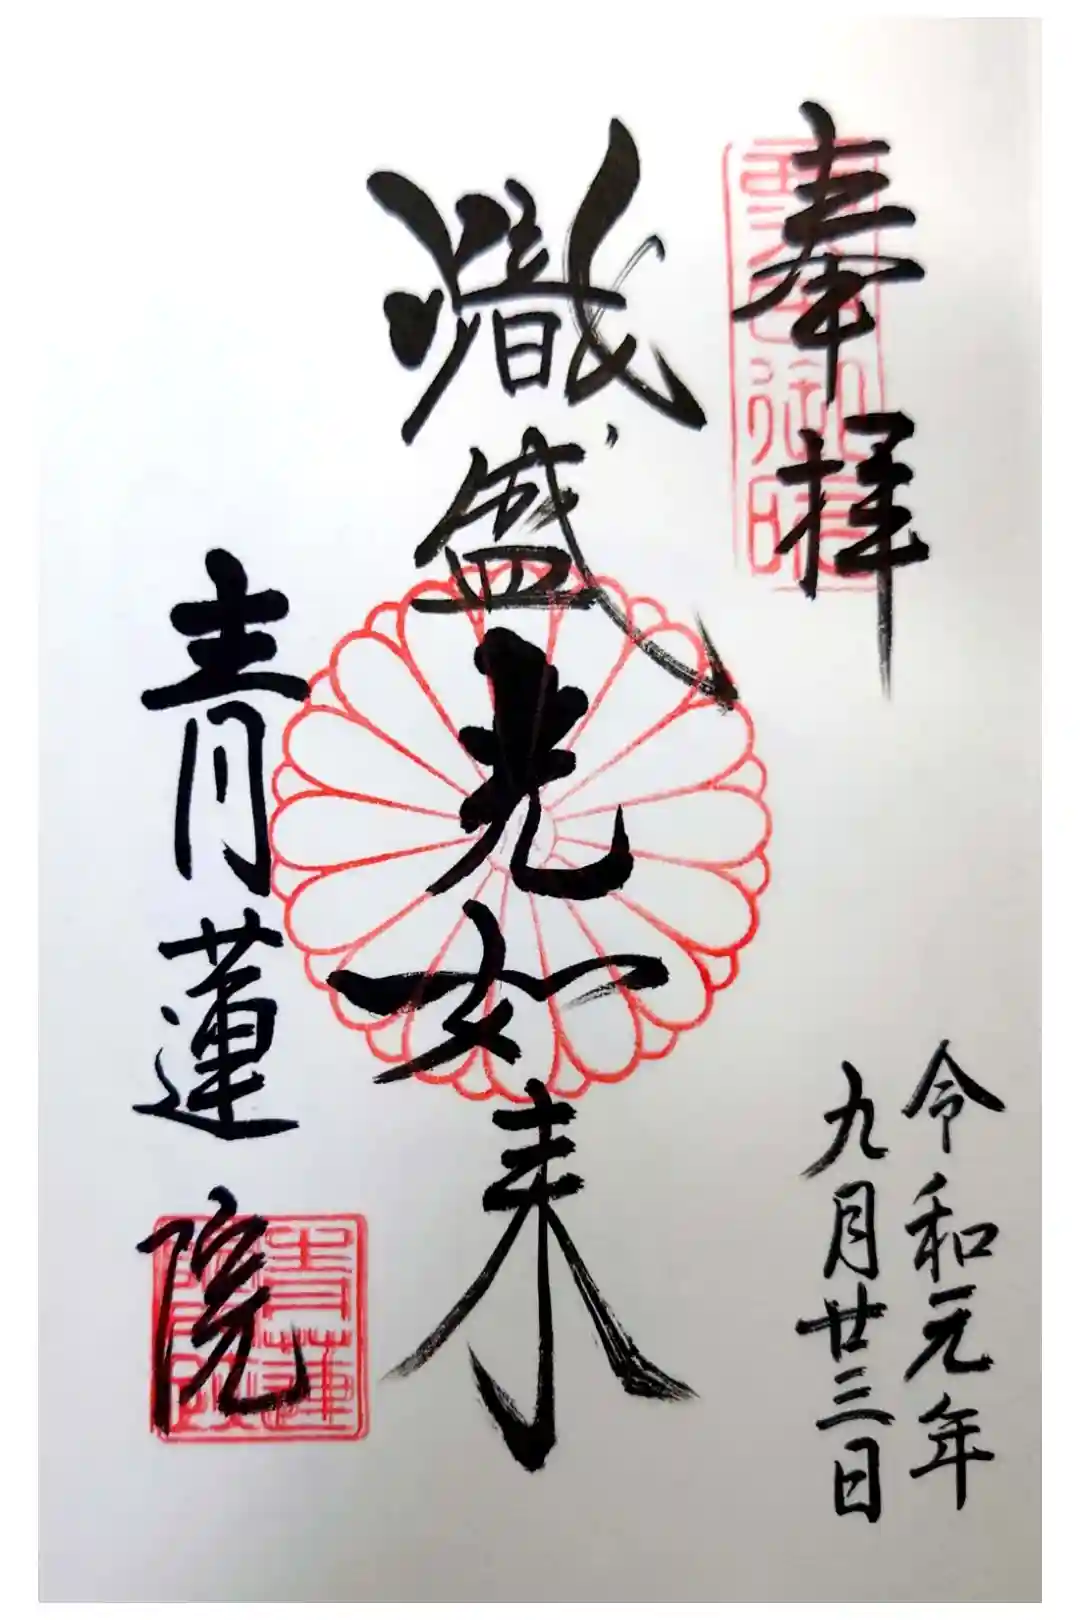 奉拝
令和元年
九月廿三日
熾盛光如来
青蓮院
青蓮院